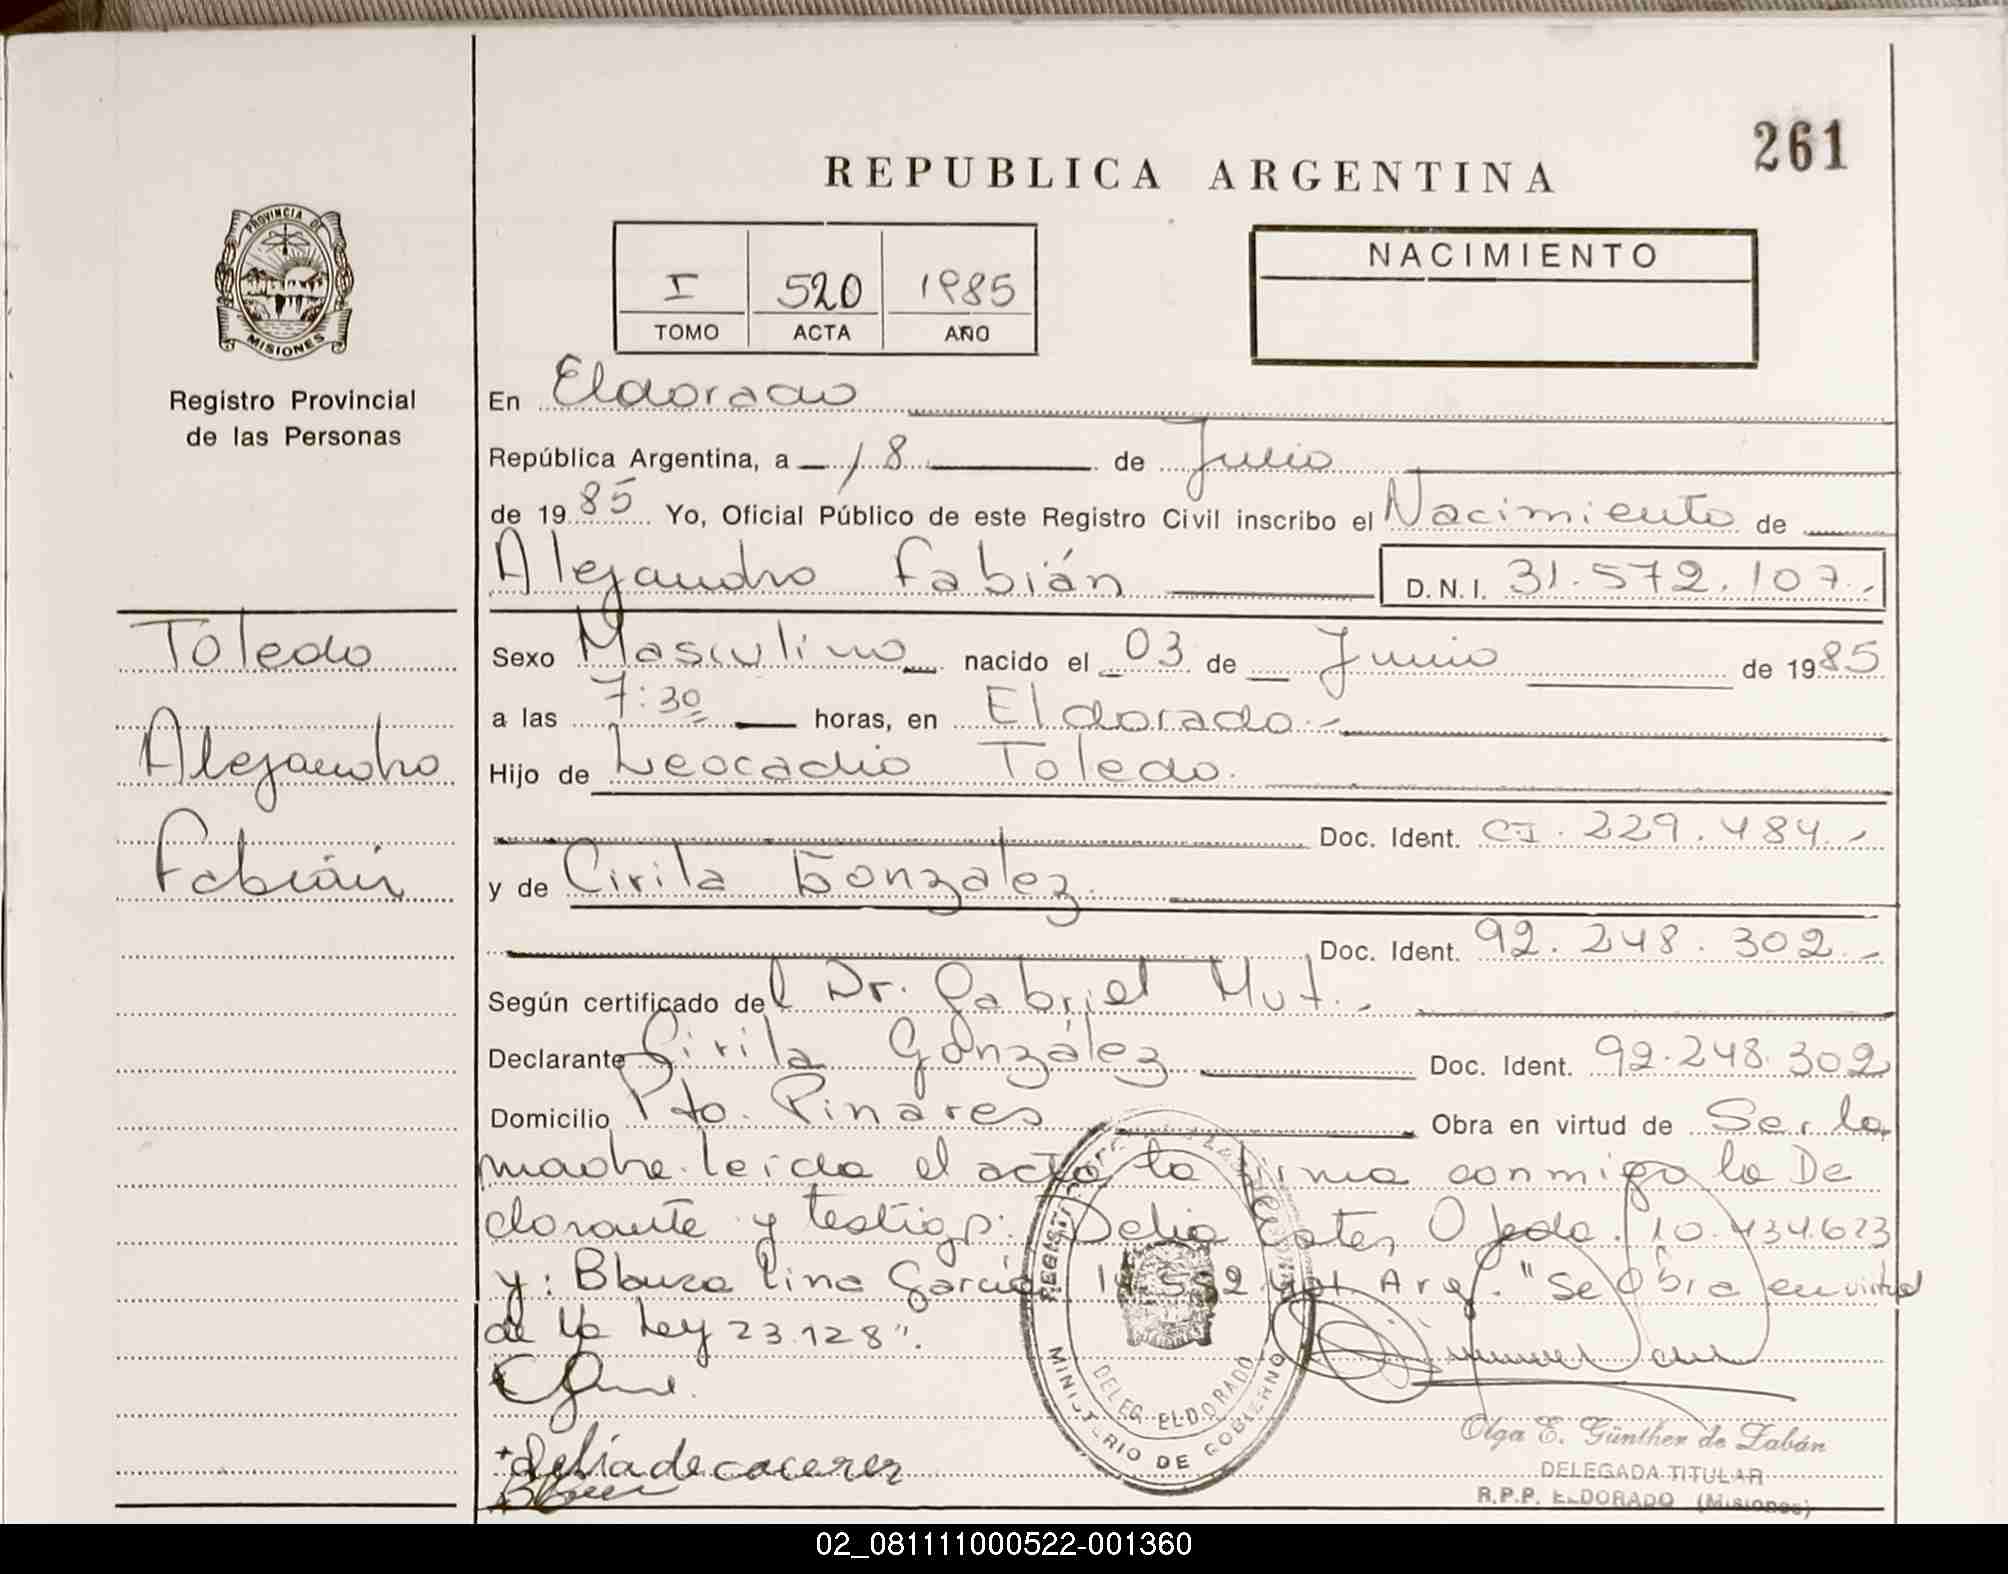 261
REPUBLICA ARGENTINA
PROVINCIA DE
MISIONES
Registro Provincial
de las Personas
I 520 1985
TOMO ACTA AÑO
NACIMIENTO
En Eldorado
República Argentina, a 18 de Junio
de 1985 Yo, Oficial Público de este Registro Civil inscribo el Nacimiento de
Alejandro Fabián D.N.I. 31.572.107.-
Toledo
Alejandro
Fabián
Sexo Masculino nacido el 03 de Junio de 1985
a las 7:30 horas, en Eldorado.-
Hijo de Leocadio Toledo.
Doc. Ident. C.I. 229.484.-
y de Cirila Gonzalez.
Doc. Ident. 92.248.302.-
Según certificado del Dr. Gabriel Mut.-
Declarante Cirila González Doc. Ident. 92.248.302
Domicilio Pto. Pinares Obra en virtud de Ser la
madre. leida el acta la firma conmigo la De
clarante y testigos: Delia Ester Ojeda. 10.434.623
y: Blanca Lina Garcia Arg. "Se Obra en virtud
de la Ley 23.128".
Delia de caceres
MINISTERIO DE GOBIERNO
DELEG. ELDORADO
Olga E. Günther de Zabán
DELEGADA TITULAR
R.P.P. ELDORADO (Misiones)
02_081111000522-001360